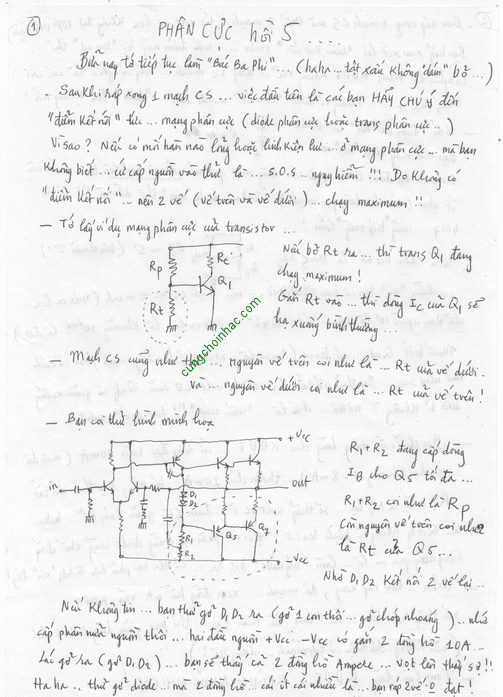 ①
PHÂN CỰC hồi 5 ....
Bữa nay tớ tiếp tục làm "Bác Ba Phi" ... (haha .. tật xấu không "dám" bỏ ...)
- Sau khi ráp xong 1 mạch CS ... việc đầu tiên là các bạn HÃY CHÚ Ý đến
"điểm kết nối" tức ... mạng phân cực (diode phân cực hoặc trans phân cực ..)
Vì sao? Nếu có mối hàn nào lỏng hoặc linh kiện hư .. ở mạng phân cực ... mà bạn
không biết ... cứ cấp nguồn vào thử là ... S.O.S .. nguy hiểm !!! Do không có
"điểm kết nối" .. nên 2 vế (vế trên và vế dưới) ... chạy maximum !!
- Tớ lấy ví dụ mạng phân cực của transistor ...
Rp
Rc
Q1
Rt
Nếu bỏ Rt ra ... thì trans Q1 đang
chạy maximum !
Gắn Rt vào ... thì dòng Ic của Q1 sẽ
hạ xuống bình thường
cungchoinhac.com
- Mạch CS cũng như thế ... nguyên vế trên coi như là ... Rt của vế dưới.
Và ... nguyên vế dưới coi như là ... Rt của vế trên !
- Bạn coi thử hình minh họa
+Vcc
in
out
D1
D2
R1
R2
Q5
Q7
-Vcc
R1+R2 đang cấp dòng
IB cho Q5 tối đa ...
R1+R2 coi như là Rp
Còn nguyên vế trên coi như
là Rt của Q5 ...
Nhờ D1 D2 kết nối 2 vế lại ...
Nếu không tin ... bạn thử gỡ D1 D2 ra (gỡ 1 con thôi ... gỡ chớp nhoáng) .. nhớ
cấp phân nửa nguồn thôi ... hai đầu nguồn +Vcc -Vcc có gắn 2 đồng hồ 10A ...
Lúc gỡ ra (gỡ D1 D2) ... bạn sẽ thấy cả 2 đồng hồ Ampere ... vọt lên thấy sợ !!
Ha ha .. thử gỡ diode ... mà 2 đồng hồ .. cái ít cái nhiều là ... bạn ráp 2 vế 0 đạt !